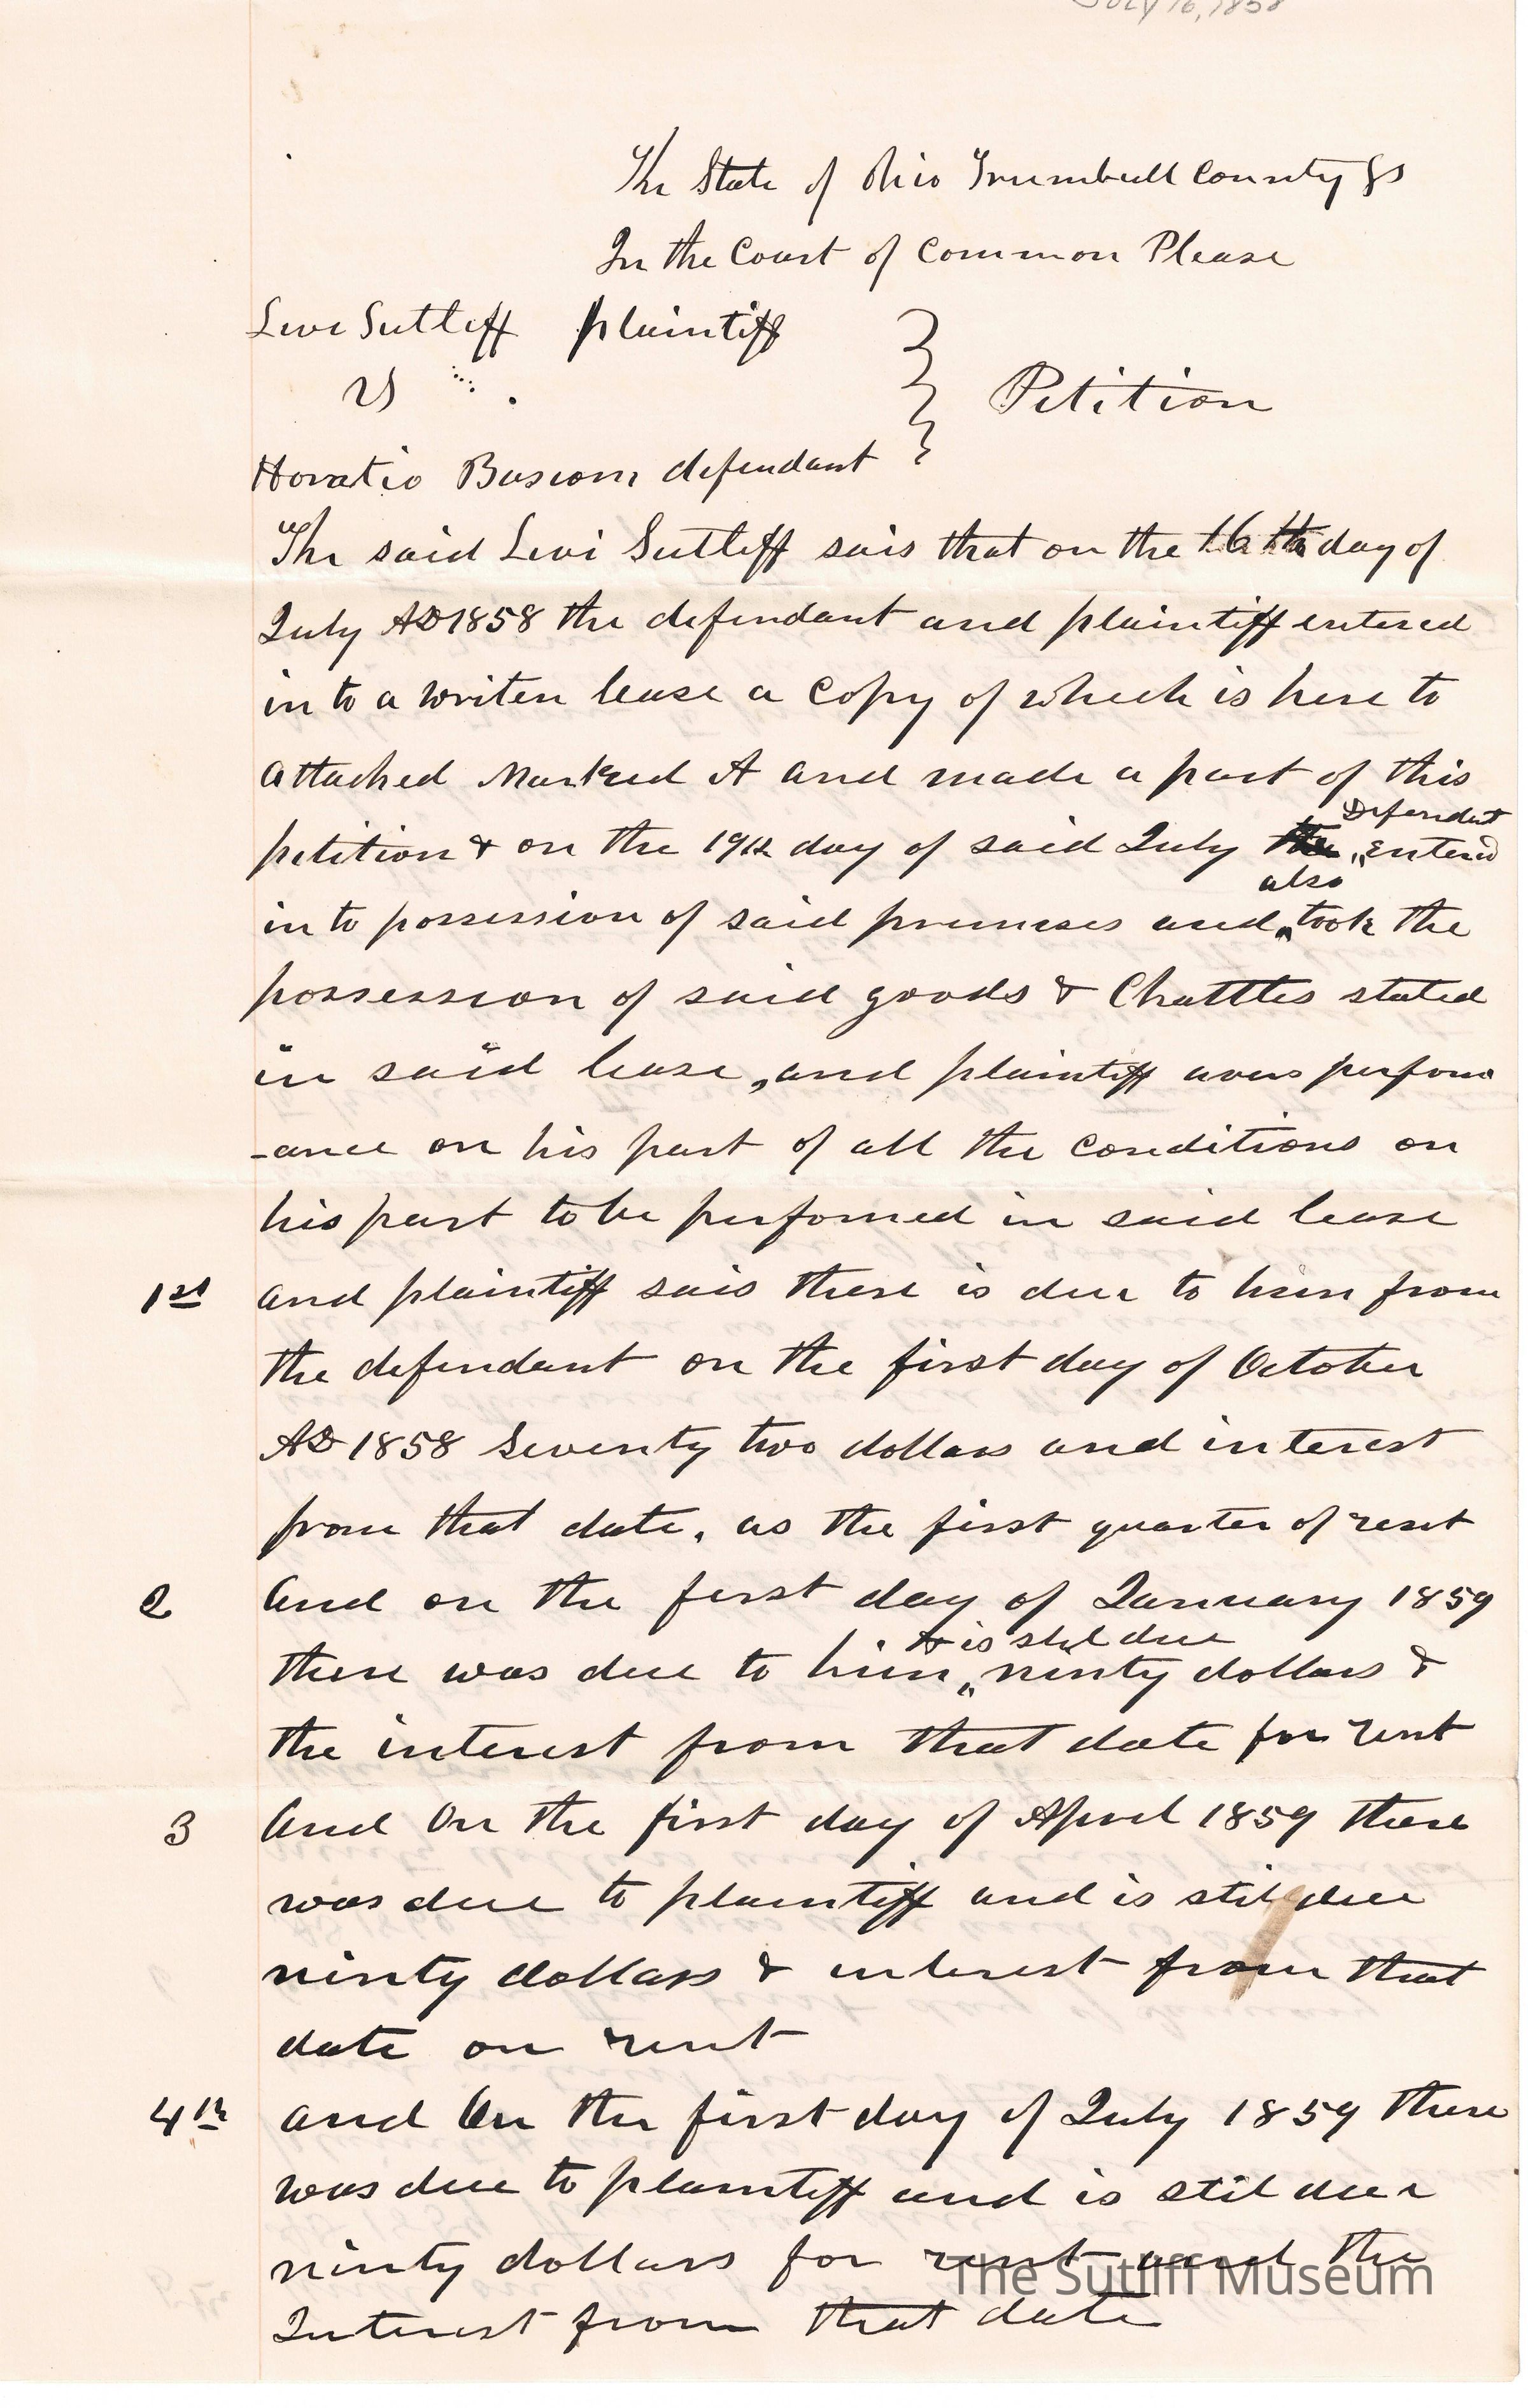 July 16, 1858
The State of Ohio Trumbull County Ss
In the Court of Common Please
Levi Sutleff plaintiff
vs
Petition
Horatio Buscom defendant
The said Levi Sutleff sais that on the 16th day of
July AD 1858 the defendant and plaintiff entered
in to a writen lease a copy of which is here to
attached Marked A and made a part of this
petition & on the 19th day of said July the Defendent entered
in to possession of said premases and also took the
possession of said goods & Chattles stated
in said lease, and plaintiff avers perform
-ance on his part of all the conditions on
his part to be perfomed in said lease
1st and plaintiff sais there is due to him from
the defendant on the first day of October
AD 1858 Seventy two dollars and interest
from that date, as the first quarter of rent
2 And on the first day of January 1859
there was due to him & is stil due ninty dollars &
the interest from that date for rent
3 And On the first day of April 1859 there
was due to plaintiff and is stil due
ninty dollars & interest from that
date on rent
4th and On the first day of July 1859 there
was due to plaintiff and is stil due
ninty dollars for rent and the
Interest from that date
The Sutliff Museum